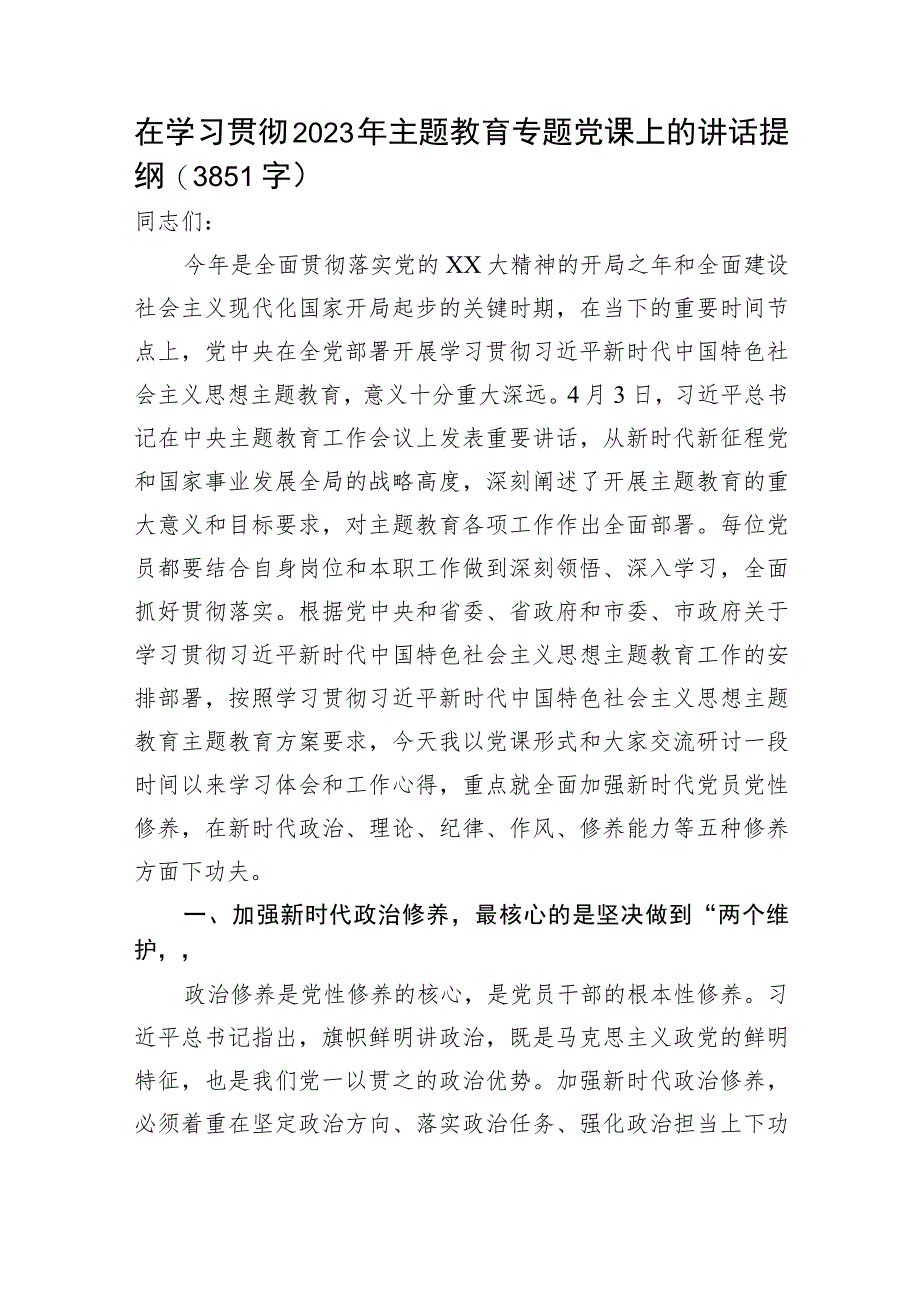 在学习贯彻2023年主题教育专题党课上的讲话提
纲（3851字）
同志们：
今年是全面贯彻落实党的XX大精神的开局之年和全面建设
社会主义现代化国家开局起步的关键时期，在当下的重要时间节
点上，党中央在全党部署开展学习贯彻习近平新时代中国特色社
会主义思想主题教育，意义十分重大深远。4月3日，习近平总书
记在中央主题教育工作会议上发表重要讲话，从新时代新征程党
和国家事业发展全局的战略高度，深刻阐述了开展主题教育的重
大意义和目标要求，对主题教育各项工作作出全面部署。每位党
员都要结合自身岗位和本职工作做到深刻领悟、深入学习，全面
抓好贯彻落实。根据党中央和省委、省政府和市委、市政府关于
学习贯彻习近平新时代中国特色社会主义思想主题教育工作的安
排部署，按照学习贯彻习近平新时代中国特色社会主义思想主题
教育主题教育方案要求，今天我以党课形式和大家交流研讨一段
时间以来学习体会和工作心得，重点就全面加强新时代党员党性
修养，在新时代政治、理论、纪律、作风、修养能力等五种修养
方面下功夫。
一、加强新时代政治修养，最核心的是坚决做到“两个维
护，，
政治修养是党性修养的核心，是党员干部的根本性修养。习
近平总书记指出，旗帜鲜明讲政治，既是马克思主义政党的鲜明
特征，也是我们党一以贯之的政治优势。加强新时代政治修养，
必须着重在坚定政治方向、落实政治任务、强化政治担当上下功